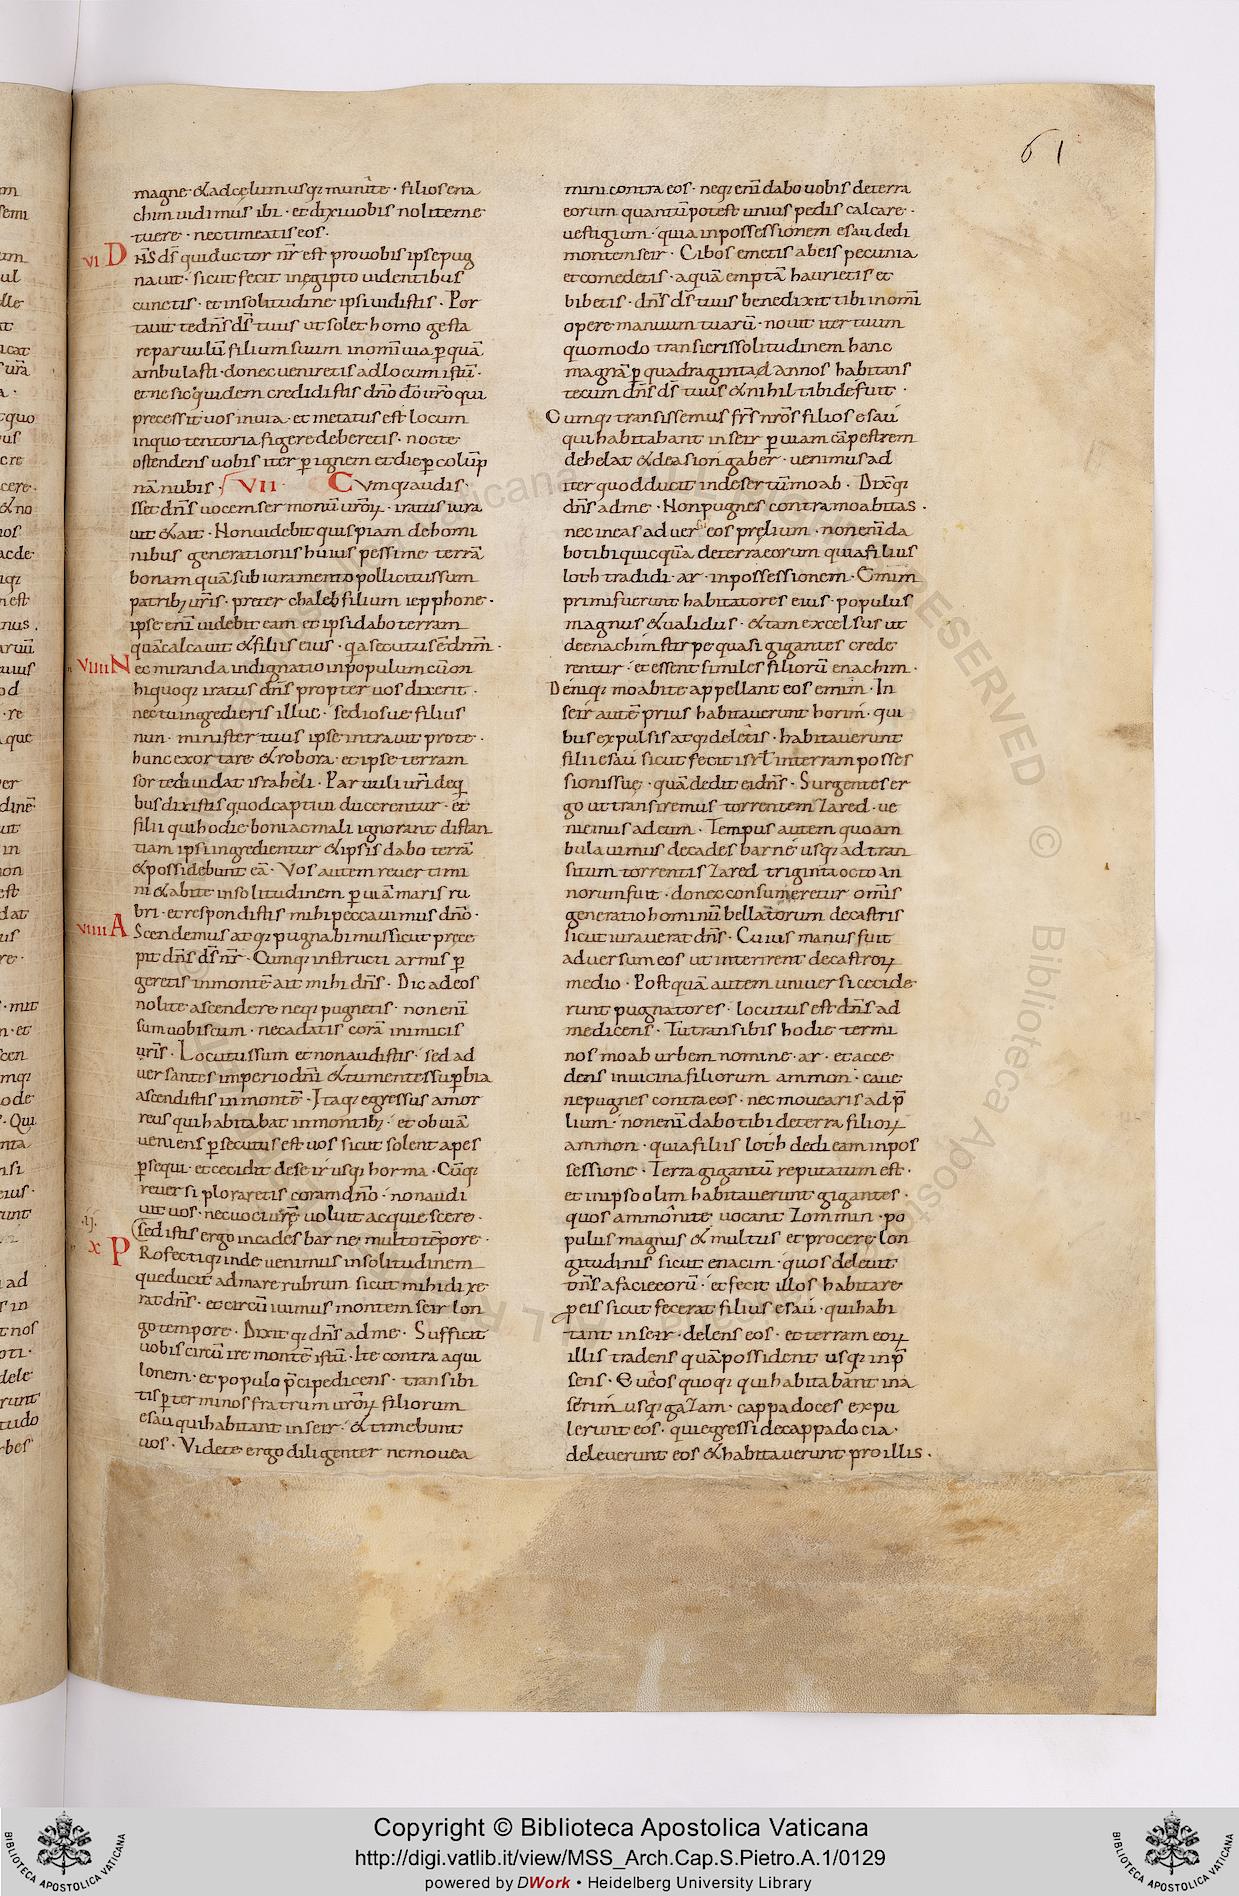 61
magne · & ad cęlum usq; munite · filios ena
chim uidimus ibi · et dixi uobis nolite me
tuere · nec timeatis eos ·
VI Dn̄s ds̄ qui ductor nr̄ est pro uobis ipse pug
nauit · sicut fecit in egipto uidentibus
cunctis · et in solitudine ipsi uidistis · Por
tauit te dn̄s ds̄ tuus ut solet homo gesta
re paruulū filium suum in omi uia p quā
ambulasti · donec ueniretis ad locum istū ·
et ne sic quidem credidistis dn̄o dō ur̄o qui
precessit uos in uia · et metatus est locum
in quo tentoria figere deberetis · nocte
ostendens uobis iter p ignem et die p colūp
nā nubis · VII Cumq; audis
set dn̄s uocem sermonū ur̄oꝝ · iratus iura
uit & ait · Non uidebit quispiam de homi
nibus generationis huius pessime terrā
bonam quā sub iuramento pollicitus sum
patrib; ur̄is · preter chaleb filium iepphone ·
ipse enī uidebit eam et ipsi dabo terram
quā calcauit & filiis eius · q̄a secutus ē dn̄m ·
VIIII Nec miranda indignatio in populum cū on
hi quoq; iratus dn̄s propter uos dixerit ·
nec tu ingredieris illuc · sed iosue filius
nun · minister tuus ipse intrauit pro te ·
hunc exortare & robora · et ipse terram
sorte diuidat israheli · Paruuli uri de q
bus dixistis quod captiui ducerentur · et
filii qui hodie boni ac mali ignorant distan
tiam ipsi ingredientur & ipsis dabo terrā
& possidebunt eā · Vos autem reuertimi
ni & abite in solitudinem p uiā maris ru
bri · et respondistis mihi peccauimus dn̄o ·
VIIII Ascendemus atq; pugnabimus sicut prece
pit dn̄s ds̄ nr̄ · Cumq; instructi armis p
geretis in montē ait mihi dn̄s · Dic ad eos
nolite ascendere neq; pugnetis · non enī
sum uobiscum · ne cadatis corā inimicis
uris · Locutus sum et non audistis · sed ad
uersantes imperio dn̄i & tumentes supbia
ascendistis in montē · Itaq; egressus amor
reus qui habitabat in montib; · et obuiā
ueniens psecutus est uos sicut solent apes
psequi · et cecidit de seir usq; horma · Cūq;
reuersi ploraretis coram dn̄o · non audi
uit uos · nec uoci ur̄ę uoluit acquiescere ·
·ij· Sedistis ergo in cades barne multo tēpore ·
X Profectiq; inde uenimus in solitudinem
que ducit ad mare rubrum sicut mihi dixe
rat dn̄s · et circū iuimus montem seir lon
go tempore · Dixitq; dn̄s ad me · Sufficit
uobis circū ire montē istū · Ite contra aqui
lonem · et populo p̄cipe dicens · transibi
tis p terminos fratrum ur̄oꝝ filiorum
esau qui habitant in seir · & timebunt
uos · Videte ergo diligenter ne mouea
mini contra eos · neq; enī dabo uobis de terra
eorum quantū potest unius pedis calcare ·
uestigium · quia in possessionem esau dedi
montem seir · Cibos emetis ab eis pecunia
et comedetis · aquā emptā haurietis et
bibetis · dn̄s ds̄ tuus benedixit tibi in omī
opere manuum tuarū · nouit iter tuum
quomodo transieris solitudinem hanc
magnā p quadraginta annos habitans
tecum dn̄s ds̄ tuus & nihil tibi defuit ·
Cumq; transissemus fr̄s nr̄os filios esau
qui habitabant in seir p uiam cāpestrem
de helat & de asiongaber · uenimus ad
iter quod ducit in desertū moab · Dixitq;
dn̄s ad me · Non pugnes contra moabitas ·
nec ineas aduersus eos pręlium · non enī da
bo tibi quicquā de terra eorum quia filiis
loth tradidi · ar · in possessionem · Emim
primi fuerunt habitatores eius · populus
magnus & ualidus · & tam excelsus ut
de enachim stirpe quasi gigantes crede
rentur · et essent similes filiorū enachim ·
Deniq; moabite appellant eos emim · In
seir autē prius habitauerunt horim · qui
bus expulsis atq; deletis · habitauerunt
filii esau sicut fecit isrl in terram posses
sionis suę · quā dedit ei dn̄s · Surgentes er
go ut transiremus torrentem Zared · ue
nimus ad eum · Tempus autem quo am
bulauimus de cades barne usq; ad tran
situm torrentis Zared triginta octo an
norum fuit · donec consumeretur omis
generatio hominū bellatorum de castris
sicut iurauerat dn̄s · Cuius manus fuit
aduersum eos ut interirent de castroꝝ
medio · Postquā autem uniuersi cecide
runt pugnatores · locutus est dn̄s ad
me dicens · Tu transibis hodie termi
nos moab urbem nomine · ar · et acce
dens in uicina filiorum ammon · caue
ne pugnes contra eos · nec mouearis ad p̄
lium · non enī dabo tibi de terra filioꝝ
ammon · quia filiis loth dedi eam in pos
sessione · Terra gigantū reputata est ·
et in ipso olim habitauerunt gigantes ·
quos ammonite uocant Zommin · po
pulus magnus & multus et procere lon
gitudinis sicut enacim · quos deleuit
dn̄s a facie eorū · et fecit illos habitare
p eis sicut fecerat filiis esau · qui habi
tant in seir · delens eos · et terram eoꝝ
illis tradens quā possident usq; in p̄
sens · Eueos quoq; qui habitabant in a
serim usq; gaZam · cappadoces expu
lerunt eos · qui egressi de cappadocia ·
deleuerunt eos & habitauerunt pro illis ·
Copyright © Biblioteca Apostolica Vaticana
http://digi.vatlib.it/view/MSS_Arch.Cap.S.Pietro.A.1/0129
powered by DWork • Heidelberg University Library